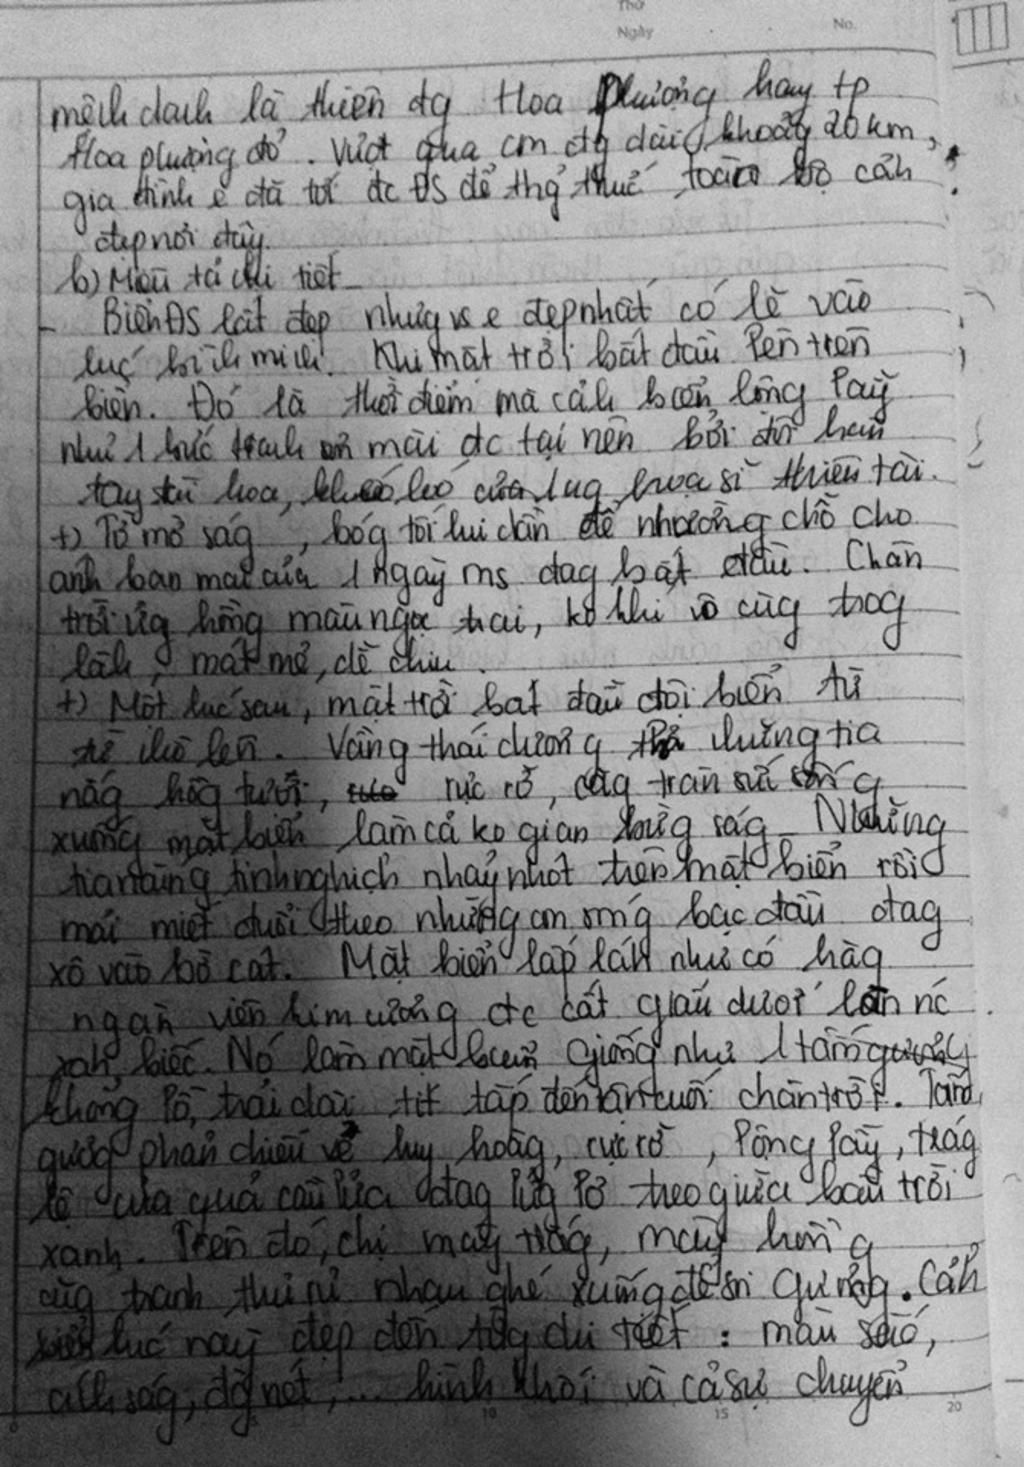 Thứ
Ngày No.
mệnh danh là thiên đg Hoa Phượng hay tp
Hoa phượng đỏ. Vượt qua cm đg dài khoảg 20km,
gia đình e đã tới đc ĐS để thg thức toàn bộ cảh
đẹp nơi đây.
b) Miêu tả chi tiết
- Biển ĐS rất đẹp nhưg vs e đẹp nhất có lẽ vào
lúc bình minh. Khi mặt trời bắt đầu lên trên
biển. Đó là thời điểm mà cảh biển lộng lẫy
như 1 bức tranh sơn mài đc tại nên bởi đôi bàn
tay tài hoa, khéo léo của 1 ng họa sĩ thiên tài.
+) Tờ mờ ság, bóg tối lui dần để nhường chỗ cho
ánh ban mai của 1 ngày ms đag bắt đầu. Chân
trời ửg hồng màu ngọc trai, ko khí vô cùg trog
làh, mát mẻ, dễ chịu.
+) Một lúc sau, mặt trời bắt đầu đội biển từ
từ nhô lên. Vầng thái dương thả những tia
nắg hồg tươi, rực rỡ, căg tràn sức sống
xuống mặt biển làm cả ko gian bừg ság. Những
tia nắng tinh nghịch nhảy nhót trên mặt biển rồi
mải miết đuổi theo những con sóng bạc đầu đag
xô vào bờ cát. Mặt biển lấp lánh như có hàg
ngàn viên kim cương đc cất giấu dưới làn nc
xah biếc. Nó làm mặt biển giống như 1 tấm gương
khổng lồ, trải dài tít tắp đến tận cuối chân trời. Tấm
gươg phản chiếu vẻ huy hoàg, rực rỡ, lộng lẫy, trág
lệ của quả cầu lửa đag lửg lơ treo giữa bầu trời
xanh. Trên đó, chị mây trắg, mây hồng
cùg tranh thủ rủ nhau ghé xuống để soi gương. Cảh
biển lúc này đẹp đến từg chi tiết: màu sắc,
ánh ság, đg nét,... hình khối và cả sự chuyển
10 15 20